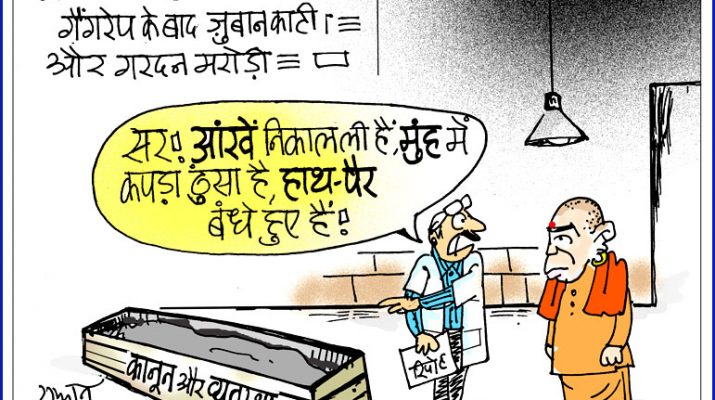 गैंगरेप के बाद ज़ुबान काटी।
और गरदन मरोड़ी
सर! आंखें निकाल ली हैं, मुंह में
कपड़ा ठुंसा है, हाथ-पैर
बंधे हुए हैं!
रिपोर्ट
कानून और व्यवस्था